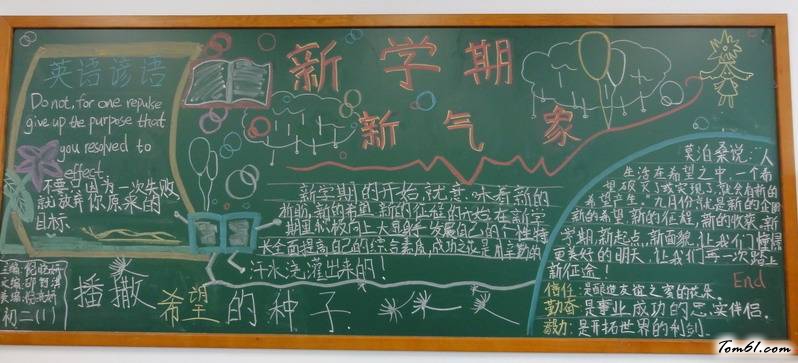 英语谚语
Do not, for one repulse
give up the purpose that
you resolved to
effect.
不要只因为一次失败
就放弃你原来的
目标.
新学期
新气象
新学期的开始,就意味着新的
祈盼,新的希望,新的征程的开始.在新学
期里积极向上大
发展自己的个性特
长全面提高自己的综合素质,成功之花是用辛勤的
汗水浇灌出来的!
莫泊桑说:人
生活在希望之中,一个希
望破灭了或实现了,就会有新的
希望产生.九月份就是新的
新的希望,新的征程,新的收获,新
学期,新起点,新面貌,让我们懂得
更美好的明天,让我们再一次踏上
新征途!
End
信任:是酿造友谊之蜜的花朵.
勤奋:是事业成功的忠实伴侣.
毅力:是开拓世界的利剑.
播撒希望的种子
主编:
文编:
美编:
初二(1)
Tom61.com